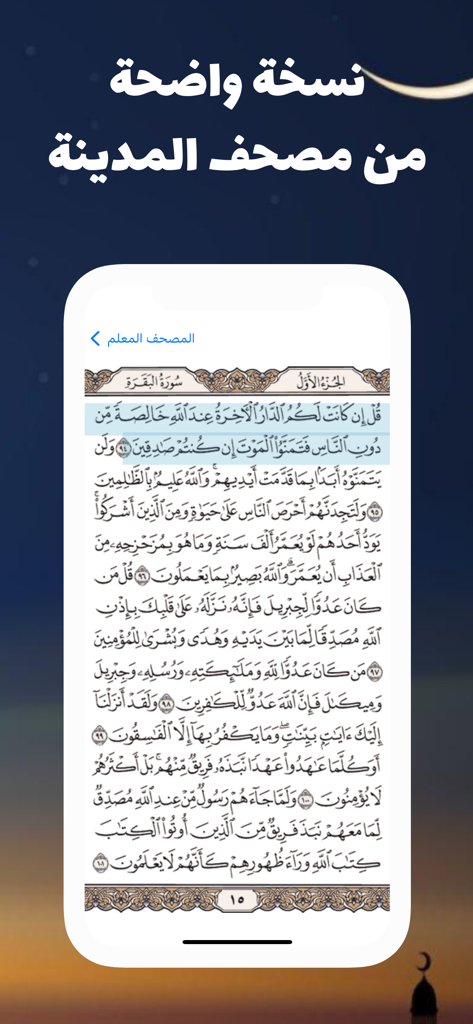 نسخة واضحة
من مصحف المدينة
المصحف المعلم
الجُزءُ الأَوَّلُ
سُورَةُ البَقَرَةِ
قُلْ إِن كَانَتْ لَكُمُ الدَّارُ الْآخِرَةُ عِندَ اللَّهِ خَالِصَةً مِّن
دُونِ النَّاسِ فَتَمَنَّوُا الْمَوْتَ إِن كُنتُمْ صَادِقِينَ ٩٤ وَلَن
يَتَمَنَّوْهُ أَبَدًا بِمَا قَدَّمَتْ أَيْدِيهِمْ ۗ وَاللَّهُ عَلِيمٌ بِالظَّالِمِينَ
٩٥ وَلَتَجِدَنَّهُمْ أَحْرَصَ النَّاسِ عَلَىٰ حَيَوٰةٍ وَمِنَ الَّذِينَ أَشْرَكُوا ۚ
يَوَدُّ أَحَدُهُمْ لَوْ يُعَمَّرُ أَلْفَ سَنَةٍ وَمَا هُوَ بِمُزَحْزِحِهِ مِنَ
الْعَذَابِ أَن يُعَمَّرَ ۗ وَاللَّهُ بَصِيرٌ بِمَا يَعْمَلُونَ ٩٦ قُلْ مَن
كَانَ عَدُوًّا لِّجِبْرِيلَ فَإِنَّهُ نَزَّلَهُ عَلَىٰ قَلْبِكَ بِإِذْنِ
اللَّهِ مُصَدِّقًا لِّمَا بَيْنَ يَدَيْهِ وَهُدًى وَبُشْرَىٰ لِلْمُؤْمِنِينَ
٩٧ مَن كَانَ عَدُوًّا لِّلَّهِ وَمَلَٰٓئِكَتِهِ وَرُسُلِهِ وَجِبْرِيلَ
وَمِيكَىٰلَ فَإِنَّ اللَّهَ عَدُوٌّ لِّلْكَافِرِينَ ٩٨ وَلَقَدْ أَنزَلْنَا
إِلَيْكَ ءَايَٰتٍ بَيِّنَٰتٍ ۖ وَمَا يَكْفُرُ بِهَا إِلَّا الْفَاسِقُونَ ٩٩
أَوَكُلَّمَا عَٰهَدُوا عَهْدًا نَّبَذَهُ فَرِيقٌ مِّنْهُم ۚ بَلْ أَكْثَرُهُمْ
لَا يُؤْمِنُونَ ١٠٠ وَلَمَّا جَآءَهُمْ رَسُولٌ مِّنْ عِندِ اللَّهِ مُصَدِّقٌ
لِّمَا مَعَهُمْ نَبَذَ فَرِيقٌ مِّنَ الَّذِينَ أُوتُوا الْكِتَٰبَ
كِتَٰبَ اللَّهِ وَرَآءَ ظُهُورِهِمْ كَأَنَّهُمْ لَا يَعْلَمُونَ ١٠١
١٥